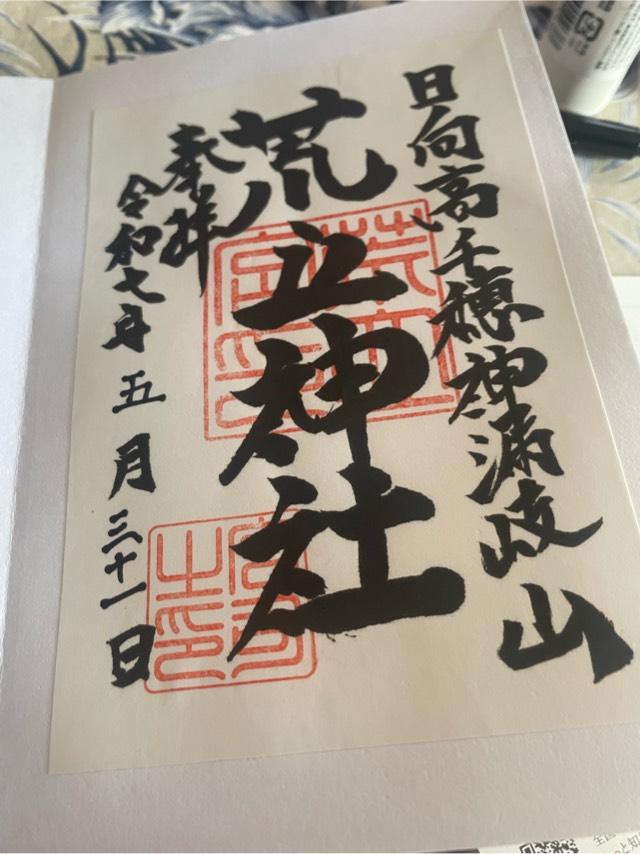 日向高千穂神漏岐山
荒立神社
荒立宮印
宮司之印
奉拝
令和七年五月三十一日